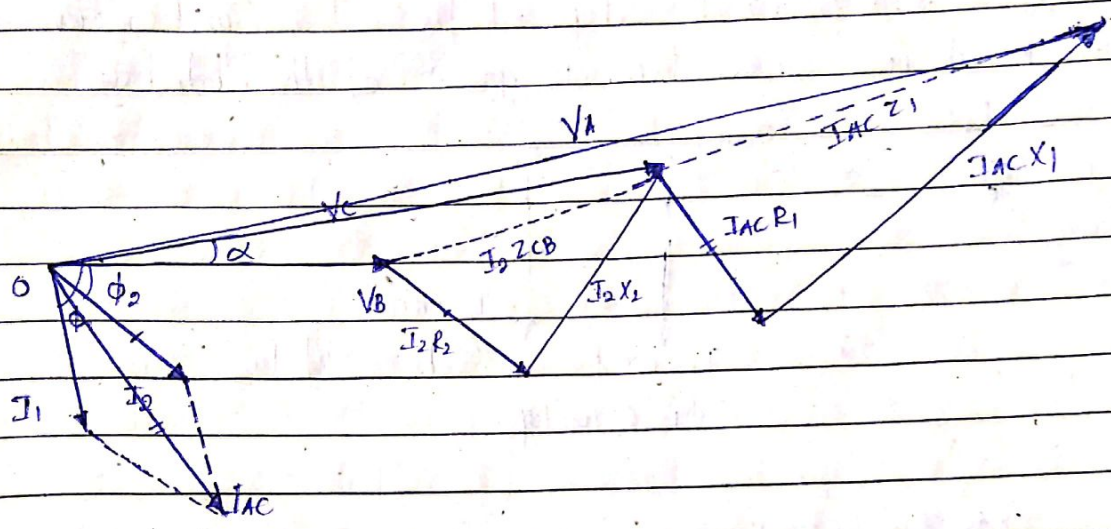 VA
IAC Z1
IAC X1
VC
IAC R1
α
I2 ZCB
O
ϕ2
VB
I2X2
ϕ
I2R2
I1
I2
IAC